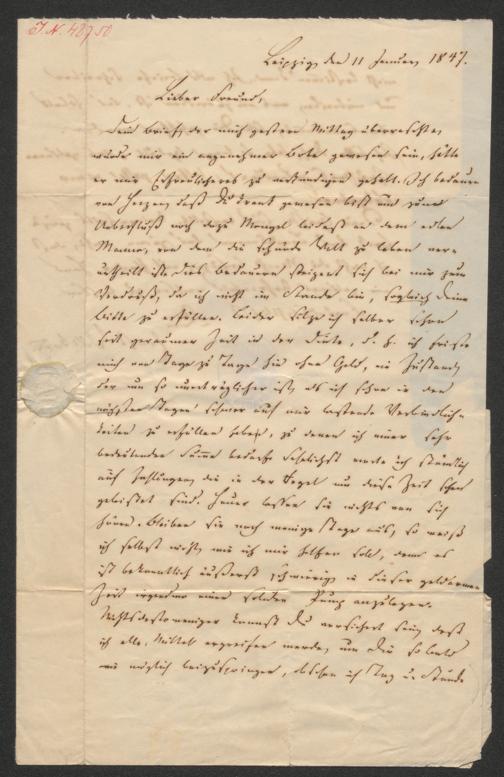 J. N. 48750
Leipzig den 11 Januar 1847.
Lieber Freund,
Dein Brief, der mich gestern Mittag überraschte,
würde mir ein angenehmer Bote gewesen sein, hätte
er mir Erfreulicheres zu verkündigen gehabt. Ich bedaure
von Herzen, daß Du krank gewesen bist und zum
Ueberfluß noch dazu Mangel leidest an dem edlen
Mammo, von dem die schnöde Welt zu leben ver-
urtheilt ist. Dies Bedauern steigert sich bei mir zum
Verdruß, da ich nicht im Stande bin, sogleich Deine
Bitte zu erfüllen. Leider sitze ich selber schon
seit geraumer Zeit in der Tinte, d. h. ich friste
mich von Tage zu Tage hin ohne Geld, ein Zustand,
der um so unerträglicher ist, als ich schon in den
nächsten Tagen schwer auf mir lastende Verbindlich-
keiten zu erfüllen habe, zu denen ich einer sehr
bedeutenden Summe bedarf. Sehnlichst warte ich stündlich
auf Zahlungen, die in der Regel um diese Zeit schon
geleistet sind. Heuer lassen sie nichts von sich
hören. Bleiben sie noch wenige Tage aus, so weiß
ich selbst nicht, wie ich mir helfen soll, denn es
ist bekanntlich äußerst schwierig in dieser geldarmen
Zeit irgendwo einen soliden Pump anzulegen.
Nichtsdestoweniger kannst Du versichert sein, daß
ich alle Mittel ergreifen werde, um Dir so bald
wie möglich beizuspringen, obschon ich Tag u. Stunde